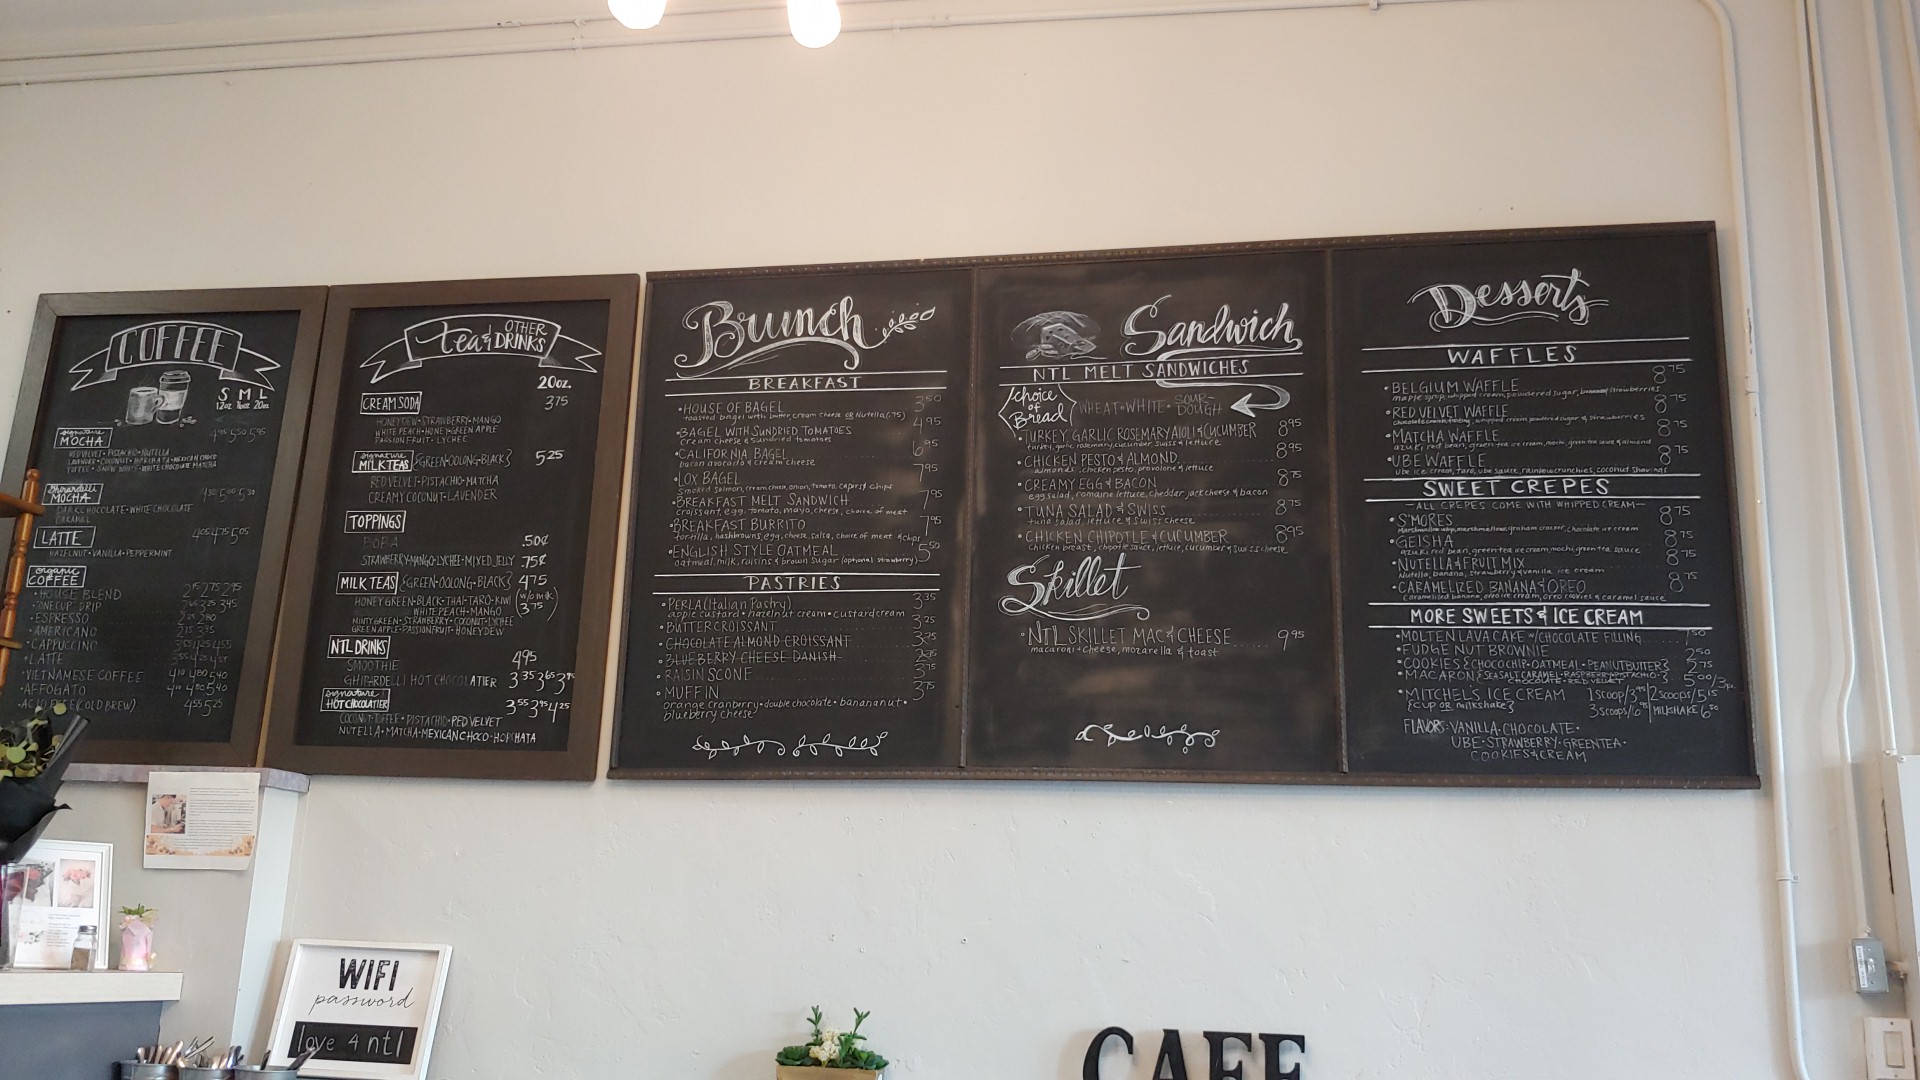 COFFEE
S M L
12oz 16oz 20oz
signature
MOCHA 4.95 5.50 5.95
RED VELVET • PISTACHIO • NUTELLA
LAVENDER • COCONUT • HORCHATA • MEXICAN CHOCO
TOFFEE • SNOW WHITE • WHITE CHOCOLATE MATCHA
Ghirardelli
MOCHA
DARK CHOCOLATE • WHITE CHOCOLATE
CARAMEL
LATTE 4.05 4.75 5.05
HAZELNUT • VANILLA • PEPPERMINT
organic
COFFEE
• HOUSE BLEND 2.15 2.75 2.95
• ONE CUP DRIP
• ESPRESSO
• AMERICANO
• CAPPUCCINO
• LATTE
• VIETNAMESE COFFEE
• AFFOGATO
(COLD BREW) 4.55 5.25
tea & OTHER DRINKS
20oz.
CREAM SODA 3.75
HONEYDEW • STRAWBERRY • MANGO
WHITE PEACH • HONEY • GREEN APPLE
PASSION FRUIT • LYCHEE
signature
MILK TEAS {GREEN • OOLONG • BLACK} 5.25
RED VELVET • PISTACHIO • MATCHA
CREAMY COCONUT • LAVENDER
TOPPINGS
BOBA .50¢
STRAWBERRY • MANGO • LYCHEE • MIXED JELLY .75¢
MILK TEAS {GREEN • OOLONG • BLACK} 4.75
HONEY GREEN • BLACK • THAI • TARO • KIWI (w/o milk
WHITE PEACH • MANGO 3.75)
MINTY GREEN • STRAWBERRY • COCONUT • LYCHEE
GREEN APPLE • PASSIONFRUIT • HONEYDEW
NTL DRINKS
SMOOTHIE 4.95
GHIRARDELLI HOT CHOCOLATIER 3.35 3.65 3.95
signature
HOT CHOCOLATIER 3.55 3.95 4.25
COCONUT • TOFFEE • PISTACHIO • RED VELVET
NUTELLA • MATCHA • MEXICAN CHOCO • HORCHATA
Brunch
BREAKFAST
• HOUSE OF BAGEL 3.50
toasted bagel with butter, cream cheese OR Nutella (.75)
• BAGEL WITH SUNDRIED TOMATOES 4.95
cream cheese & sundried tomatoes
• CALIFORNIA BAGEL 6.95
bacon avocado & cream cheese
• LOX BAGEL 7.95
smoked salmon, cream cheese, onion, tomato, capers & chips
• BREAKFAST MELT SANDWICH 7.95
croissant, egg, tomato, mayo, cheese, choice of meat
• BREAKFAST BURRITO 7.95
tortilla, hashbrowns, egg, cheese, salsa, choice of meat & chips
• ENGLISH STYLE OATMEAL 5.50
oatmeal, milk, raisins & brown sugar (optional strawberry)
PASTRIES
• PERLA (Italian Pastry) 3.35
apple custard • hazelnut cream • custard cream
• BUTTER CROISSANT 3.25
• CHOCOLATE ALMOND CROISSANT 3.75
• BLUEBERRY CHEESE DANISH
• RAISIN SCONE 3.75
• MUFFIN 3.75
orange cranberry • double chocolate • banana nut •
blueberry cheese
Sandwich
NTL MELT SANDWICHES
choice of Bread WHEAT • WHITE • SOURDOUGH
• TURKEY, GARLIC ROSEMARY AIOLI & CUCUMBER 8.95
turkey, garlic rosemary, cucumber, swiss & lettuce
• CHICKEN PESTO & ALMOND 8.95
almonds, chicken pesto, provolone & lettuce
• CREAMY EGG & BACON 8.75
egg salad, romaine lettuce, cheddar jack cheese & bacon
• TUNA SALAD & SWISS 8.75
tuna salad, lettuce & swiss cheese
• CHICKEN CHIPOTLE & CUCUMBER 8.95
chicken breast, chipotle sauce, lettuce, cucumber & swiss cheese
Skillet
• NTL SKILLET MAC & CHEESE 9.95
macaroni + cheese, mozarella & toast
Desserts
WAFFLES
• BELGIUM WAFFLE 8.75
maple syrup, whipped cream, powdered sugar, bananas/strawberries
• RED VELVET WAFFLE 8.75
whipped cream, powdered sugar & strawberries
• MATCHA WAFFLE 8.75
azuki red bean, green tea ice cream, mochi, green tea sauce & almond
• UBE WAFFLE 8.75
ube ice cream, taro, ube sauce, rainbow crunchies, coconut shavings
SWEET CREPES
—ALL CREPES COME WITH WHIPPED CREAM—
• S'MORES 8.75
marshmallow whip, marshmallows, graham cracker, chocolate ice cream
• GEISHA 8.75
azuki red bean, green tea ice cream, mochi, green tea sauce
• NUTELLA & FRUIT MIX 8.75
Nutella, banana, strawberry & vanilla ice cream
• CARAMELIZED BANANA & OREO 8.75
caramelized banana, oreo ice cream, oreo cookies & caramel sauce
MORE SWEETS & ICE CREAM
• MOLTEN LAVA CAKE w/CHOCOLATE FILLING 7.50
• FUDGE NUT BROWNIE 2.50
• COOKIES {CHOCO CHIP • OATMEAL • PEANUT BUTTER} 2.75
• MACARON {SEA SALT CARAMEL • RASPBERRY • PISTACHIO • CHOCOLATE • RED VELVET} 5.00/3pc
• MITCHEL'S ICE CREAM 1 scoop/3.95 | 2 scoops/5.15
{CUP OR milkshake} 3 scoops/6.95 | MILKSHAKE 6.50
FLAVORS: VANILLA • CHOCOLATE •
UBE • STRAWBERRY • GREEN TEA •
COOKIES & CREAM
WIFI
password
love 4 ntl
CAFE